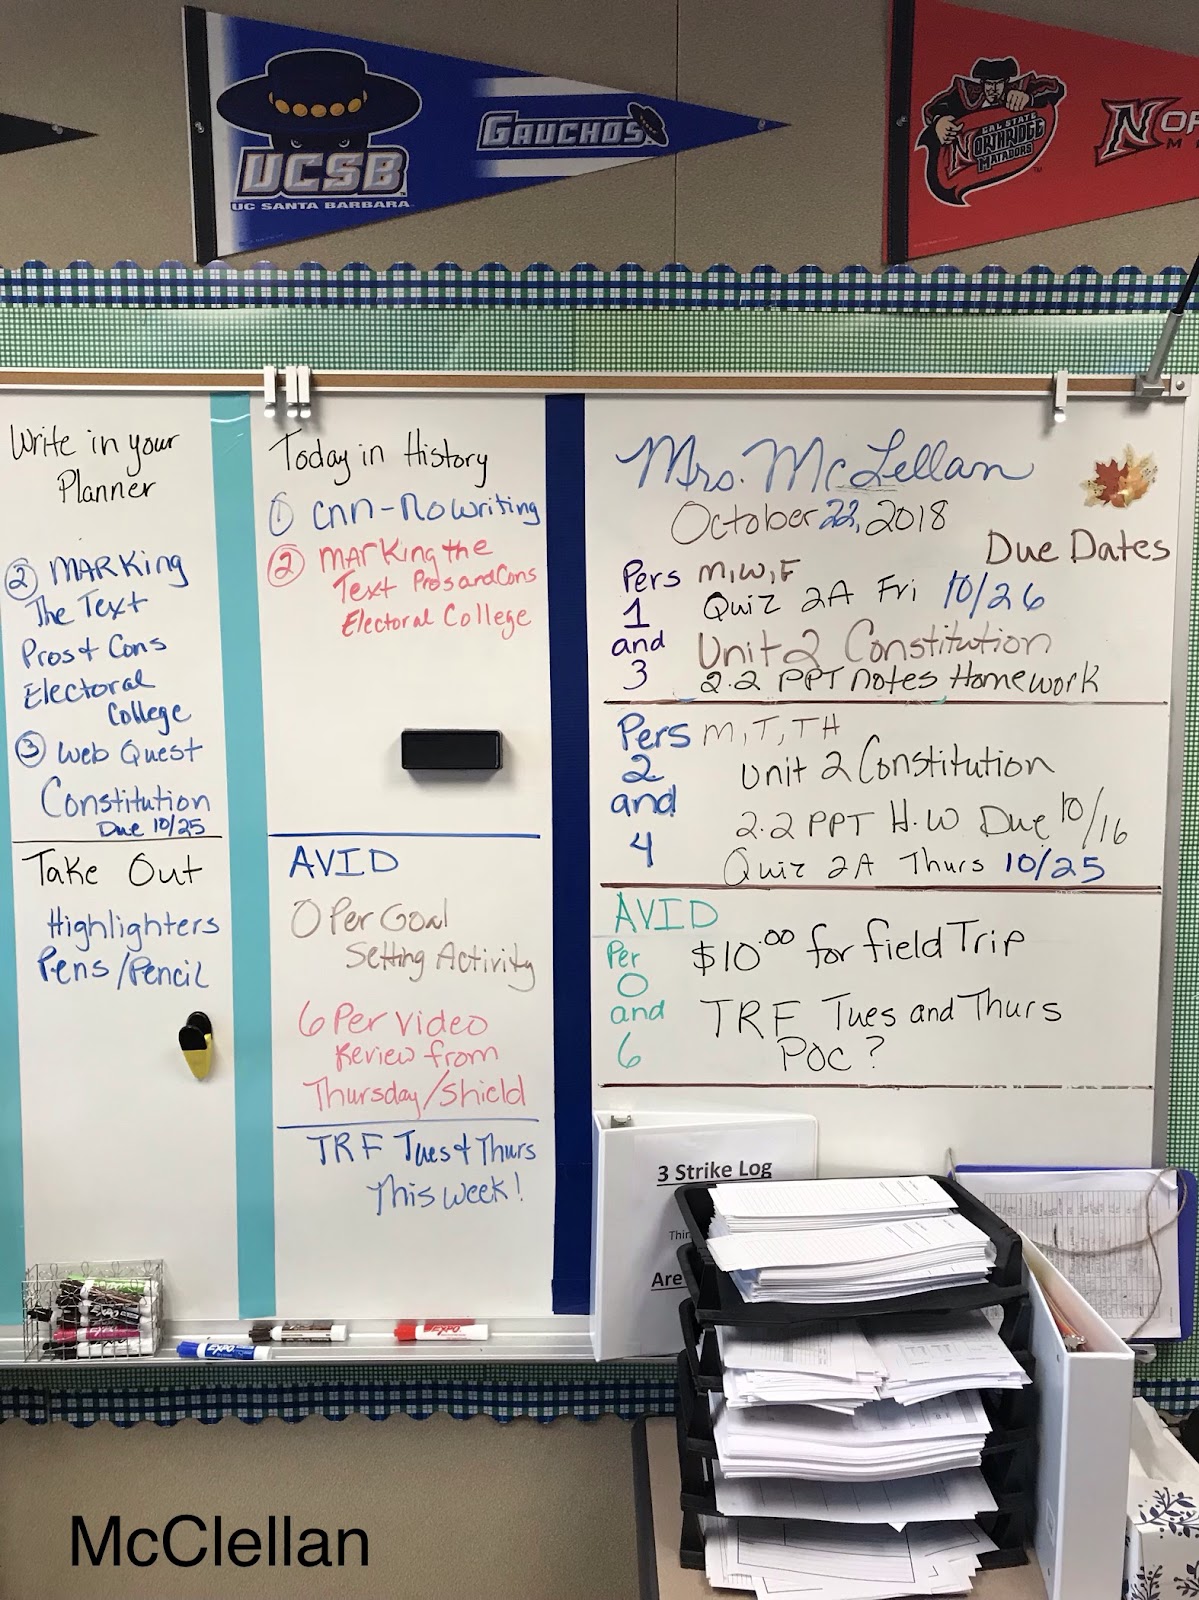 UCSB
UC SANTA BARBARA
GAUCHOS
CAL STATE
NORTHRIDGE
MATADORS
Write in your
Planner
② MARKing
The Text
Pros & Cons
Electoral
College
③ Web Quest
Constitution
Due 10/25
Take Out
Highlighters
Pens/Pencil
Today in History
① CNN-No writing
② MARKing the
Text Pros and Cons
Electoral College
AVID
0 Per Goal
Setting Activity
6 Per Video
Review from
Thursday/Shield
TRF Tues & Thurs
This week!
Mrs. McLellan
October 22, 2018
Due Dates
Pers 1 and 3
M,W,F
Quiz 2A Fri 10/26
Unit 2 Constitution
2.2 PPT notes Homework
Pers 2 and 4
M,T,TH
Unit 2 Constitution
2.2 PPT H.W Due 10/16
Quiz 2A Thurs 10/25
AVID
Per 0 and 6
$10.00 for field Trip
TRF Tues and Thurs
POC?
3 Strike Log
Are
EXPO
EXPO
McClellan